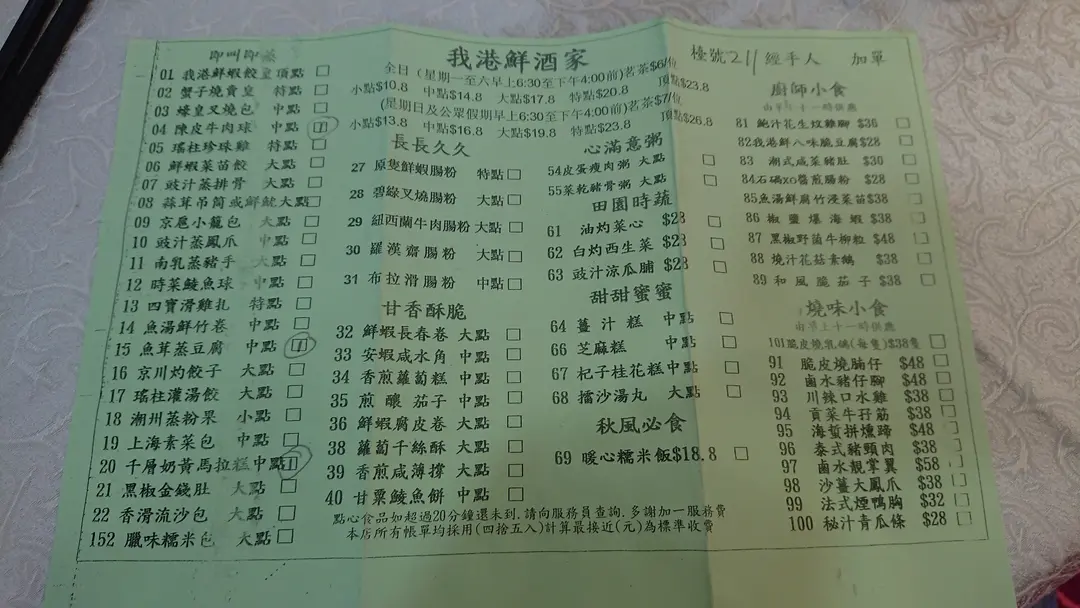 我港鮮酒家
檯號211 經手人 加單
全日(星期一至六早上6:30至下午4:00前)茗茶$6/位
小點$10.8 中點$14.8 大點$17.8 特點$20.8 頂點$23.8
(星期日及公眾假期早上6:30至下午4:00前)茗茶$7/位
小點$13.8 中點$16.8 大點$19.8 特點$23.8 頂點$26.8
即叫即蒸
01 我港鮮蝦餃皇 頂點
02 蟹子燒賣皇 特點
03 蠔皇叉燒包 中點
04 陳皮牛肉球 中點 1
05 瑤柱珍珠雞 特點
06 鮮蝦菜苗餃 大點
07 豉汁蒸排骨 大點
08 蒜茸吊筒或鮮魷 大點
09 京扈小籠包 中點
10 豉汁蒸鳳爪 中點
11 南乳蒸豬手 大點
12 時菜鯪魚球 中點
13 四寶滑雞扎 特點
14 魚湯鮮竹卷 中點
15 魚茸蒸豆腐 中點 1
16 京川灼餃子 大點
17 瑤柱灌湯餃 大點
18 潮州蒸粉果 小點
19 上海素菜包 中點
20 千層奶黃馬拉糕 中點 1
21 黑椒金錢肚 大點
22 香滑流沙包 大點
152 臘味糯米包 大點
長長久久
27 原隻鮮蝦腸粉 特點
28 碧綠叉燒腸粉 大點
29 紐西蘭牛肉腸粉 大點
30 羅漢齋腸粉 大點
31 布拉滑腸粉 中點
甘香酥脆
32 鮮蝦長春卷 大點
33 安蝦咸水角 中點
34 香煎蘿蔔糕 中點
35 煎釀茄子 中點
36 鮮蝦腐皮卷 大點
38 蘿蔔千絲酥 大點
39 香煎咸薄撐 大點
40 甘粟鯪魚餅 中點
心滿意粥
54 皮蛋瘦肉粥 大點
55 菜乾豬骨粥 大點
田園時蔬
61 油灼菜心 $28
62 白灼西生菜 $28
63 豉汁涼瓜脯 $28
甜甜蜜蜜
64 薑汁糕 中點
66 芝麻糕 中點
67 杞子桂花糕 中點
68 擂沙湯丸 大點
秋風必食
69 暖心糯米飯 $18.8
廚師小食
由早上十一時供應
81 鮑汁花生炆雞腳 $36
82 我港鮮八味脆豆腐 $28
83 潮式咸菜豬肚 $30
84 石磞xo醬煎腸粉 $28
85 魚湯鮮腐竹浸菜苗 $38
86 椒鹽爆海蝦 $38
87 黑椒野菌牛柳粒 $48
88 燒汁花菇素鵝 $38
89 和風脆茄子 $38
燒味小食
由早上十一時供應
101 脆皮燒乳鴿(每隻) $38隻
91 脆皮燒腩仔 $48
92 鹵水豬仔腳 $48
93 川辣口水雞 $38
94 貢菜牛孖筋 $38
95 海蜇拼燻蹄 $48
96 泰式豬頸肉 $38
97 鹵水靚掌翼 $58
98 沙薑大鳳爪 $38
99 法式煙鴨胸 $32
100 秘汁青瓜條 $28
點心食品如超過20分鐘還未到,請向服務員查詢.多謝加一服務費
本店所有帳單均採用(四捨五入)計算最接近(元)為標準收費